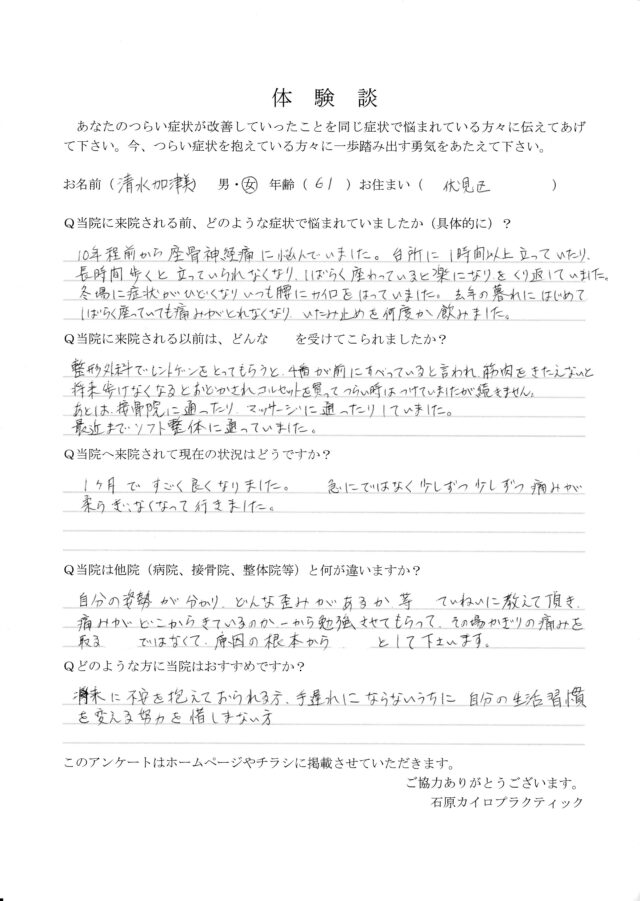 体験談
あなたのつらい症状が改善していったことを同じ症状で悩まれている方々に伝えてあげ
て下さい。今、つらい症状を抱えている方々に一歩踏み出す勇気をあたえて下さい。
お名前(清水加津美) 男・女 年齢(61)お住まい( 伏見区 )
Q当院に来院される前、どのような症状で悩まれていましたか(具体的に)?
10年程前から座骨神経痛に悩んでいました。台所に1時間以上立っていたり、
長時間歩くと立っていられなくなり、しばらく座わっていると楽になりをくり返していました。
冬場に症状がひどくなりいつも腰にカイロをはっていました。去年の暮れにはじめて
しばらく座っていても痛みがとれなくなり、いたみ止めを何度か飲みました。
Q当院に来院される以前は、どんな を受けてこられましたか?
整形外科でレントゲンをとってもらうと、4番が前にすべっていると言われ、筋肉をきたえないと
将来歩けなくなるとおどかされコルセットを買ってつらい時はつけていましたが続きません。
あとは、接骨院に通ったり、マッサージに通ったりしていました。
最近までソフト整体に通っていました。
Q当院へ来院されて現在の状況はどうですか?
1ヶ月で すごく良くなりました。 急にではなく少しずつ少しずつ痛みが
柔らぎ、なくなって行きました。
Q当院は他院(病院、接骨院、整体院等)と何が違いますか?
自分の姿勢が分かり、どんな歪みがあるか等 ていねいに教えて頂き、
痛みがどこからきているのか一から勉強させてもらって、その場かぎりの痛みを
取る ではなくて、原因の根本から として下さいます。
Qどのような方に当院はおすすめですか?
将来に不安を抱えておられる方、手遅れにならないうちに 自分の生活習慣
を変える努力を惜しまない方
このアンケートはホームページやチラシに掲載させていただきます。
ご協力ありがとうございます。
石原カイロプラクティック